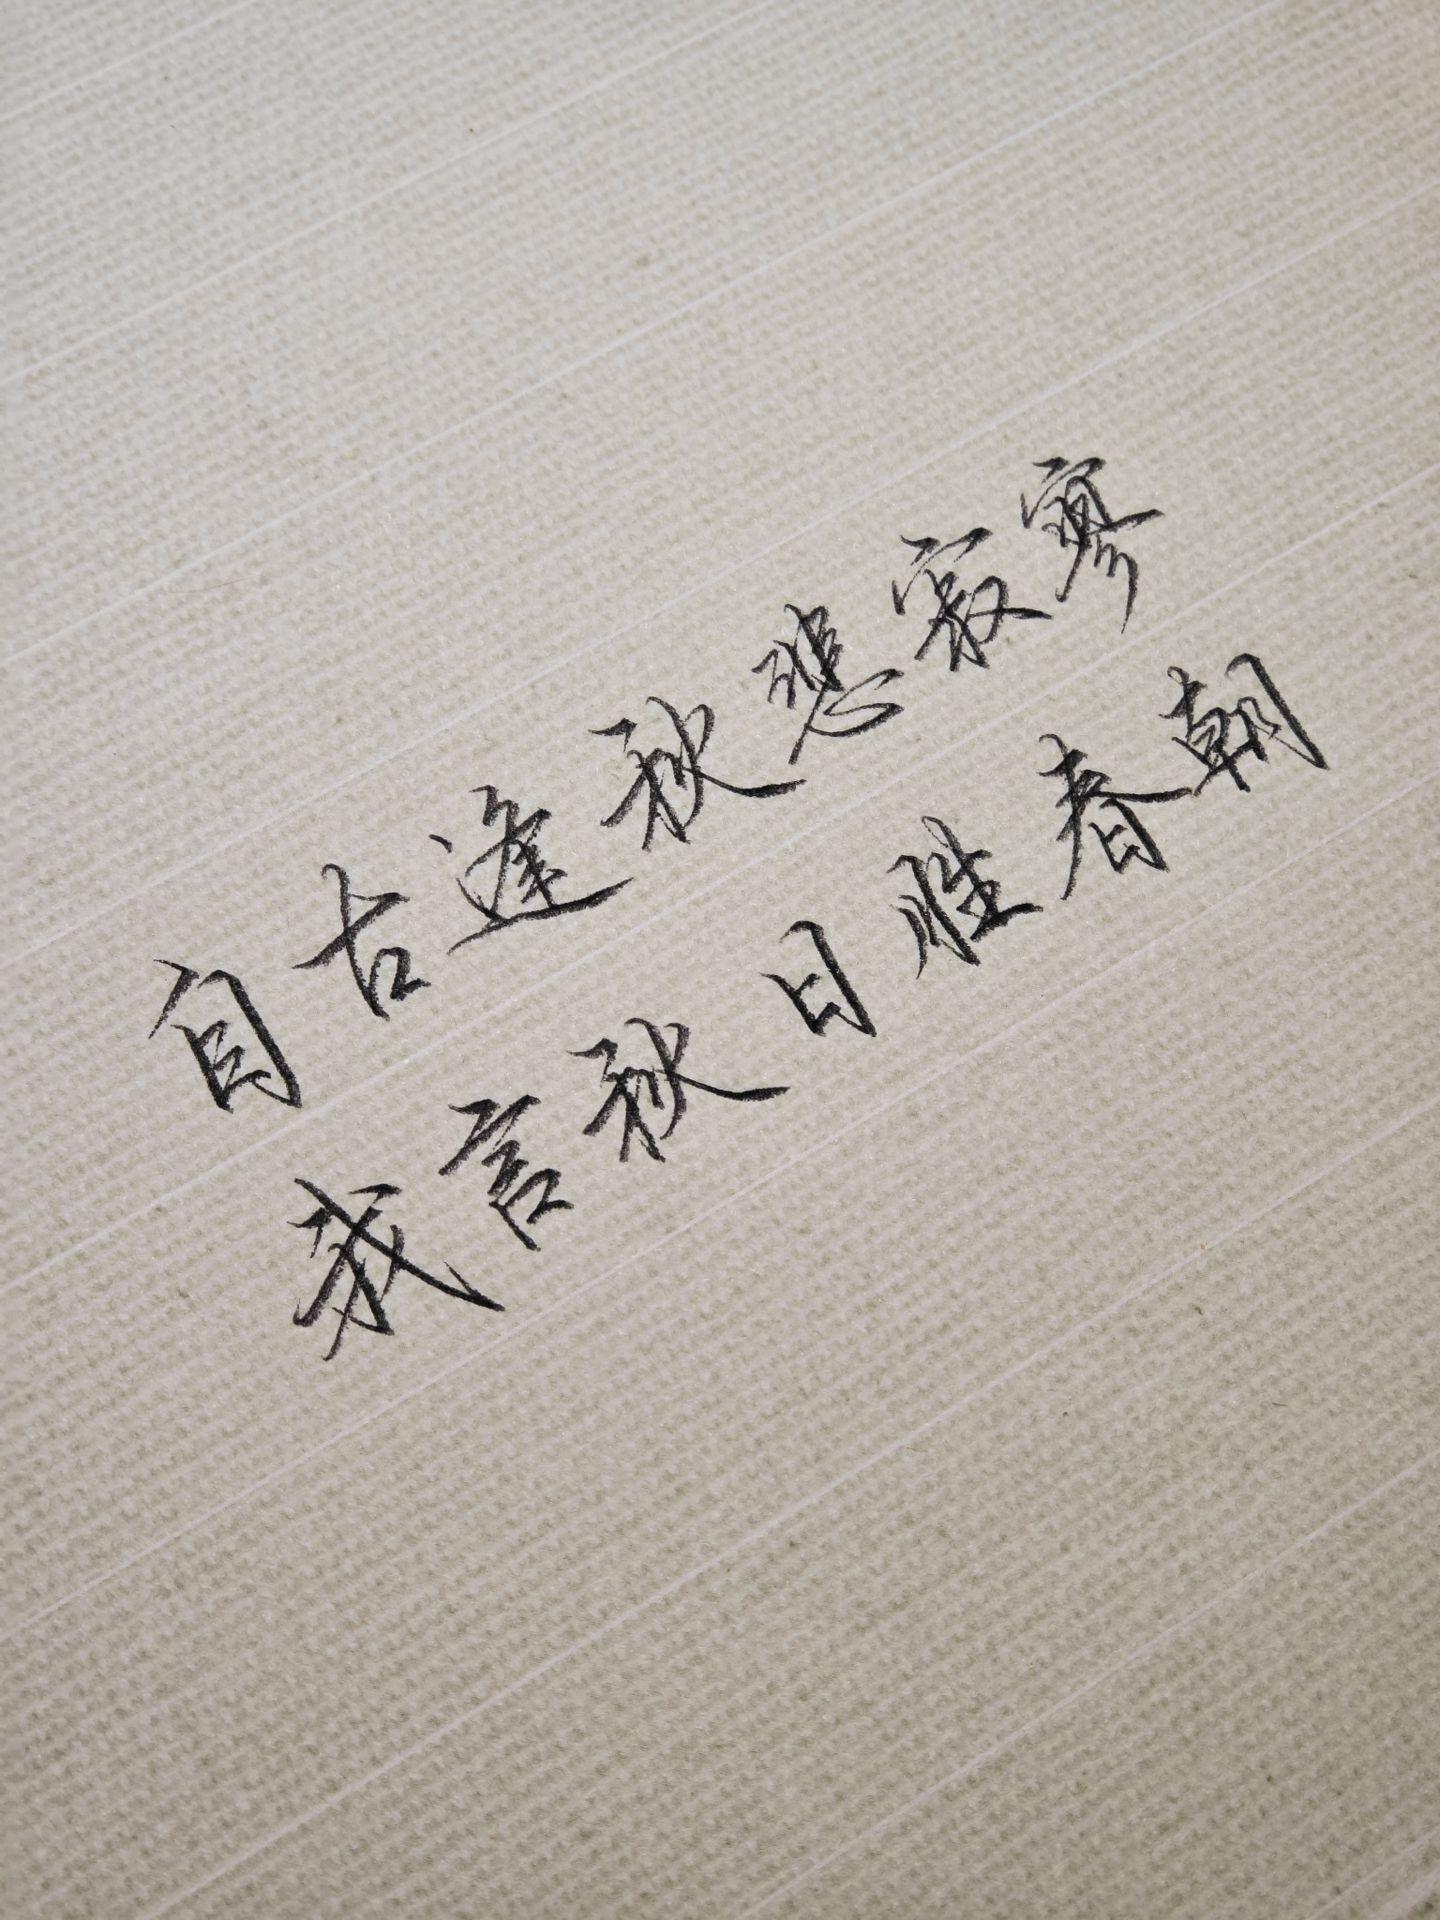 自古逢秋悲寂寥
我言秋日胜春朝